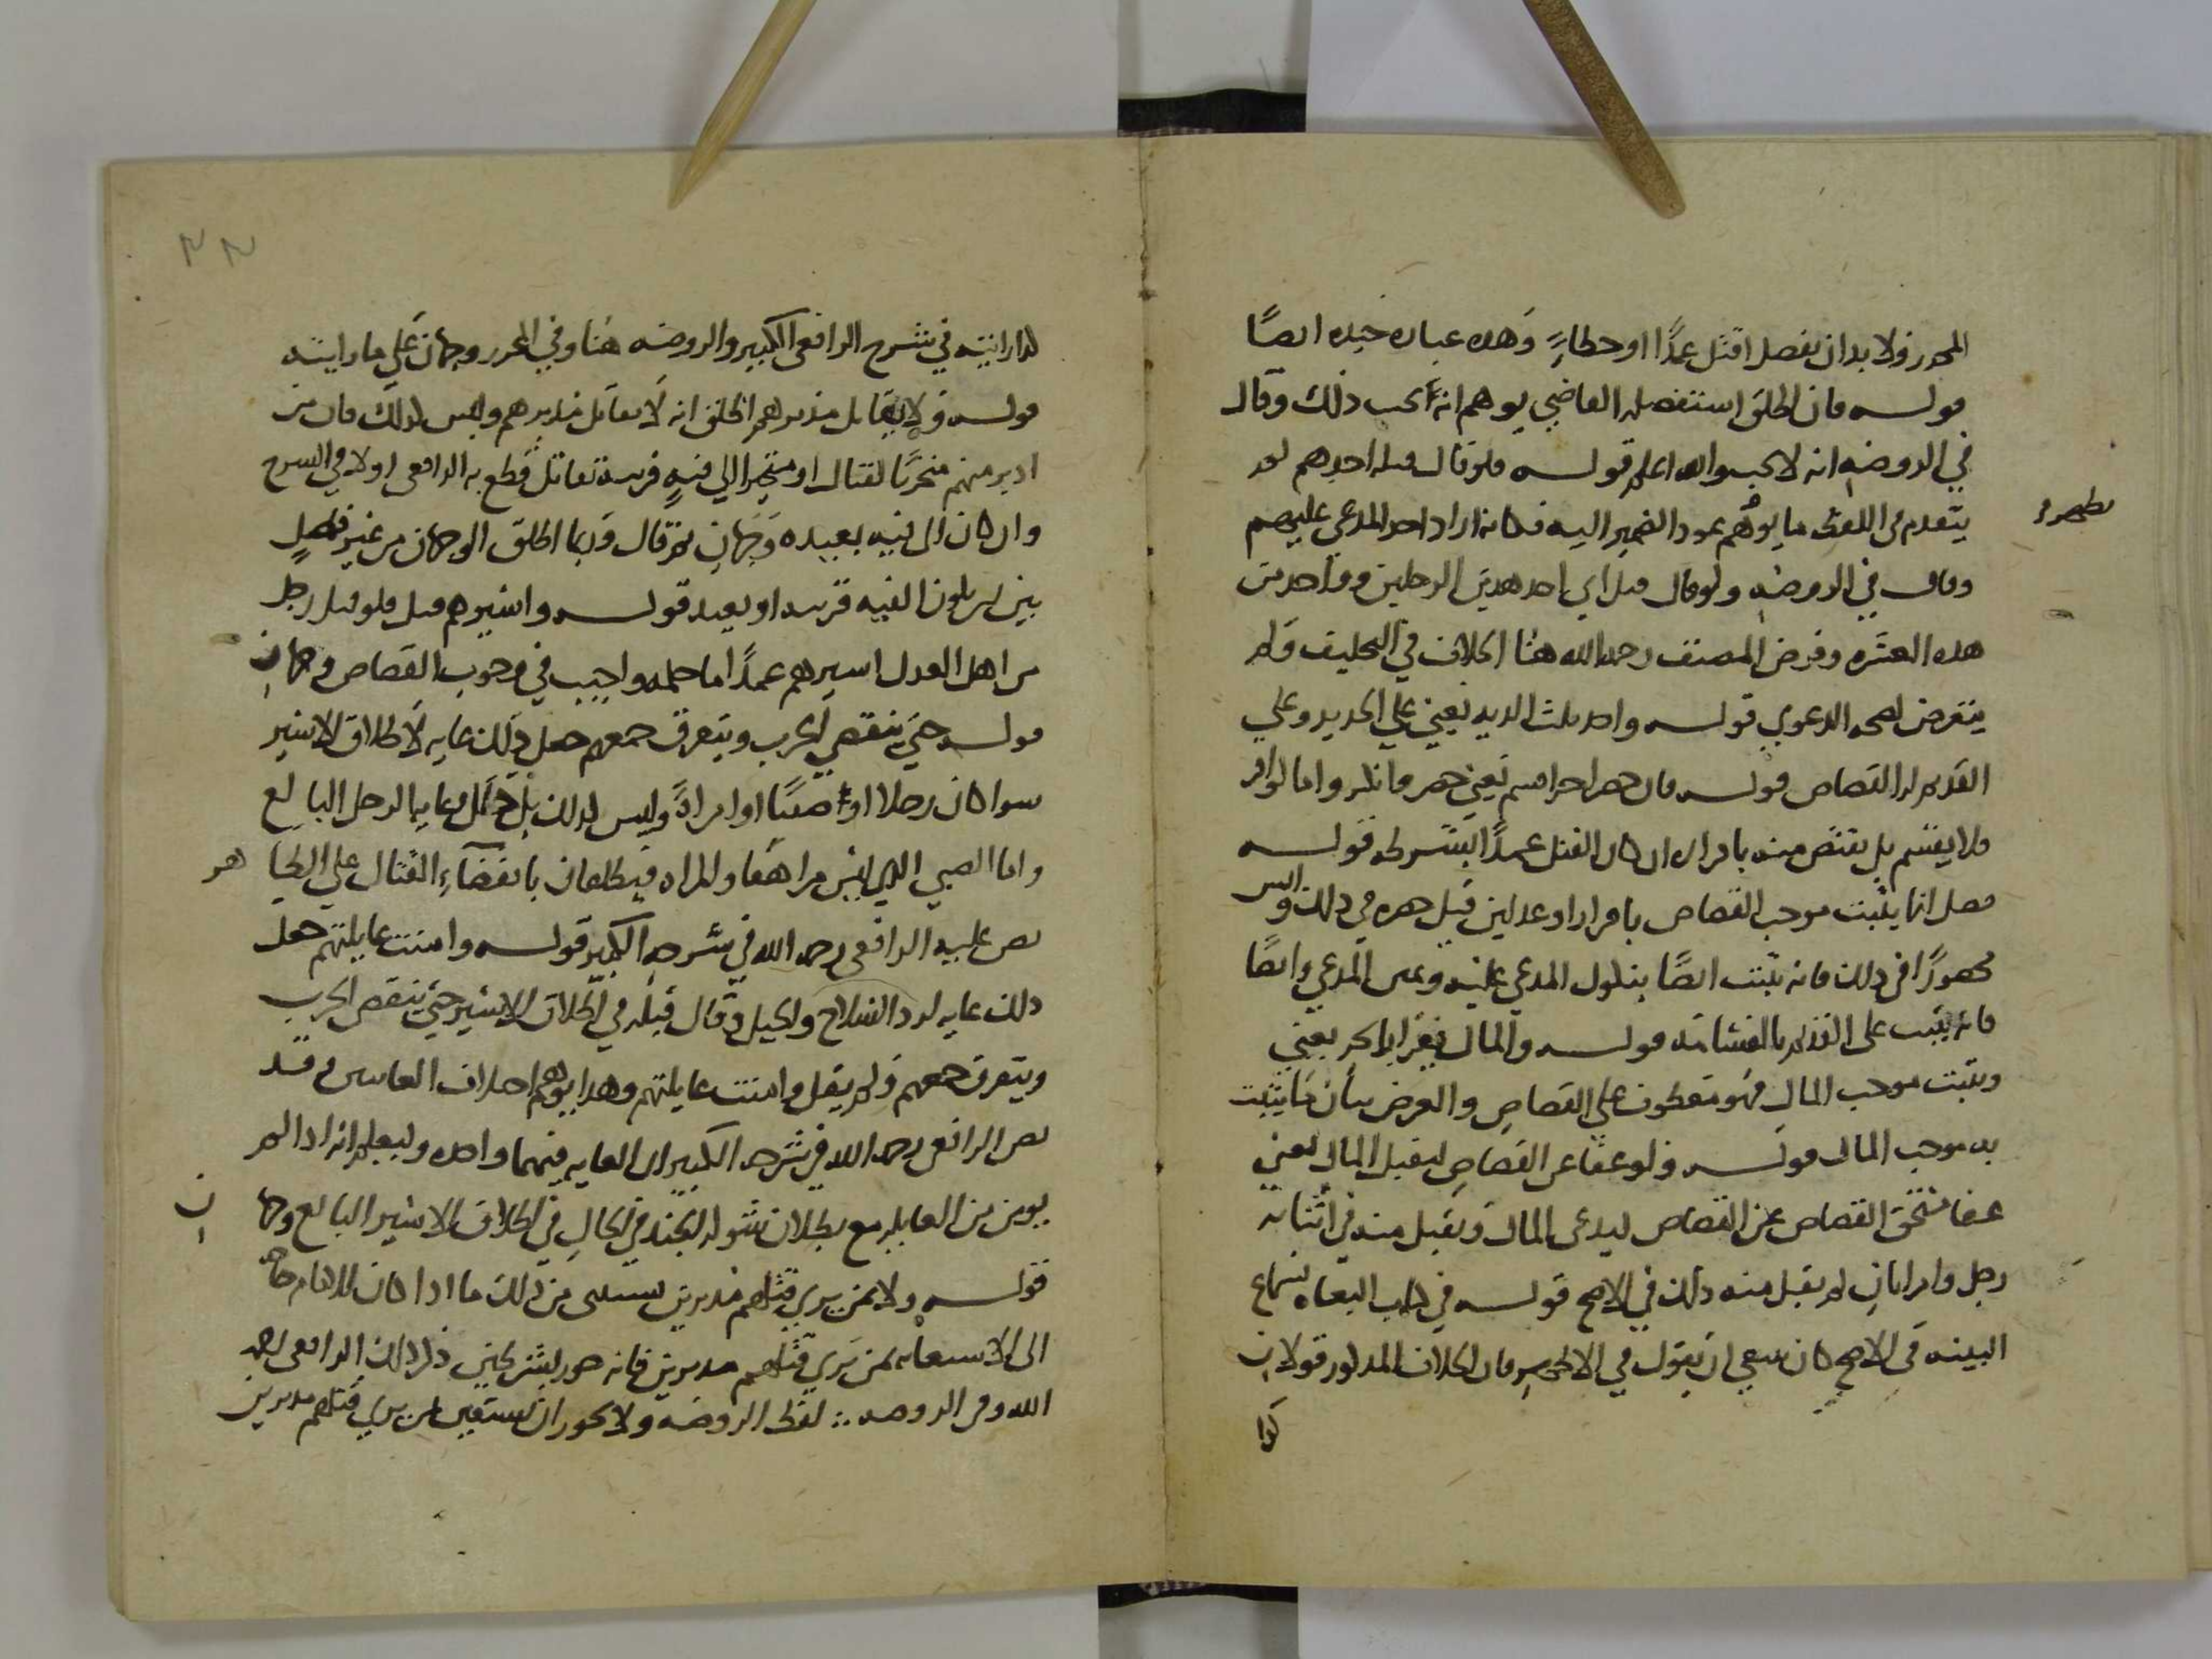 المحرر ولا بد ان يفصل اقتل عمدًا او خطاءٍ وهذه عباره جيده ايضًا
قوله فان اطلق استفصله القاضي يوهم انه يجب ذلك وقال
في الروضه انه لا يجب والله اعلم قوله فلو قال قتله احدهم لم
يتقدم في اللفظ ما يوهم عود الضمير اليه فكانه اراد احد المدعى عليهم
وقال في الروضه ولو قال قتل ابي احد هذين الرجلين او واحد من
هذه العشره وفرض المصنف رحمه الله هنا الخلاف في التحليف ولم
يتعرض لصحه الدعوى قوله واحد ثلث الديه يعني على الجديد وعلى
القديم له القصاص قوله فان حضر اخر اقسم يعني حضر وانكر واما لو اقر
فلا يقسم بل يقتص منه باقراره ان كان القتل عمدًا بشرطه قوله
فصل انما يثبت موجب القصاص باقرار او عدلين قيل حصره في ذلك وليس
محصورًا في ذلك فانه يثبت ايضًا بنكول المدعى عليه ويمين المدعي وايضًا
فانه يثبت على القديم بالقسامه قوله والمال يقرا بالجر يعني
ويثبت موجب المال فهو معطوف على القصاص والغرض بيان ما يثبت
به موجب المال قوله ولو عفا عن القصاص ليقبل المال يعني
عفا مستحق القصاص عن القصاص ليدعي المال ويقبل منه في اثباته
رجل وامراتان لم يقبل منه ذلك في الاصح قوله في كتاب البغاه بسماع
البينه في الاصح كان ينبغي ان يقول في الاظهر فان الخلاف المذكور قولان
كذا
٢٢
كذا رايته في شرح الرافعي الكبير والروضه هنا وفي المحرر وجهان على ما رايته
قوله ولا يقاتل مدبرهم اطلق انه لا يقاتل مدبرهم وليس كذلك فان من
ادبر منهم متحرفًا لقتال او متحيزا الى فيه قريبه تقاتل قطع به الرافعي اولا في الشرح
وان كان الى فيه بعيده وجهان ثم قال وربما اطلق الوجهان من غير فصلٍ
بين ان يكون الفيه قريبه او بعيده قوله واسيرهم قيل فلو قتل رجل
من اهل العدل اسيرهم عمدًا في وجوب القصاص وجهان
قوله حتى ينقضي الحرب ويتفرق جمعهم جعل ذلك غايه لاطلاق الاسير
سوا كان رجلا او صبيًا او امراهً وليس كذلك بل ذلك غايه الرجل البالغ
واما الصبي الذي ليس مراهقا والمراه فيطلقان بانقضاءِ القتال على الظاهر
نص عليه الرافعي رحمه الله في شرحه الكبير قوله وامنت غايلتهم جعل
ذلك غايه لرد السلاح والخيل وقال قبله في اطلاق الاسير حتى ينقضي الحرب
ويتفرق جمعهم ولم يقل وامنت غايلتهم وهذا يوهم اختلاف الغايتين وقد
نص الرافعي رحمه الله في شرحه الكبير ان الغايه فيهما واحده وليعلم انه اذا لم
يومن من الغايله مع بطلان شوكه الجند في الحالِ في اطلاق الاسير البالغ وجهان
قوله ولا بمن يرى قتلهم مدبرين يستثنى من ذلك ما اذا كان للامام حاجه
الى الاستعانه بمن يرى قتلهم مدبرين فانه يجوز بشرطين ذكر ذلك الرافعي رحمه
الله وفي الروضه ∴ لفظ الروضه ولا يجوز ان يستعين بمن يرى قتلهم مدبرين